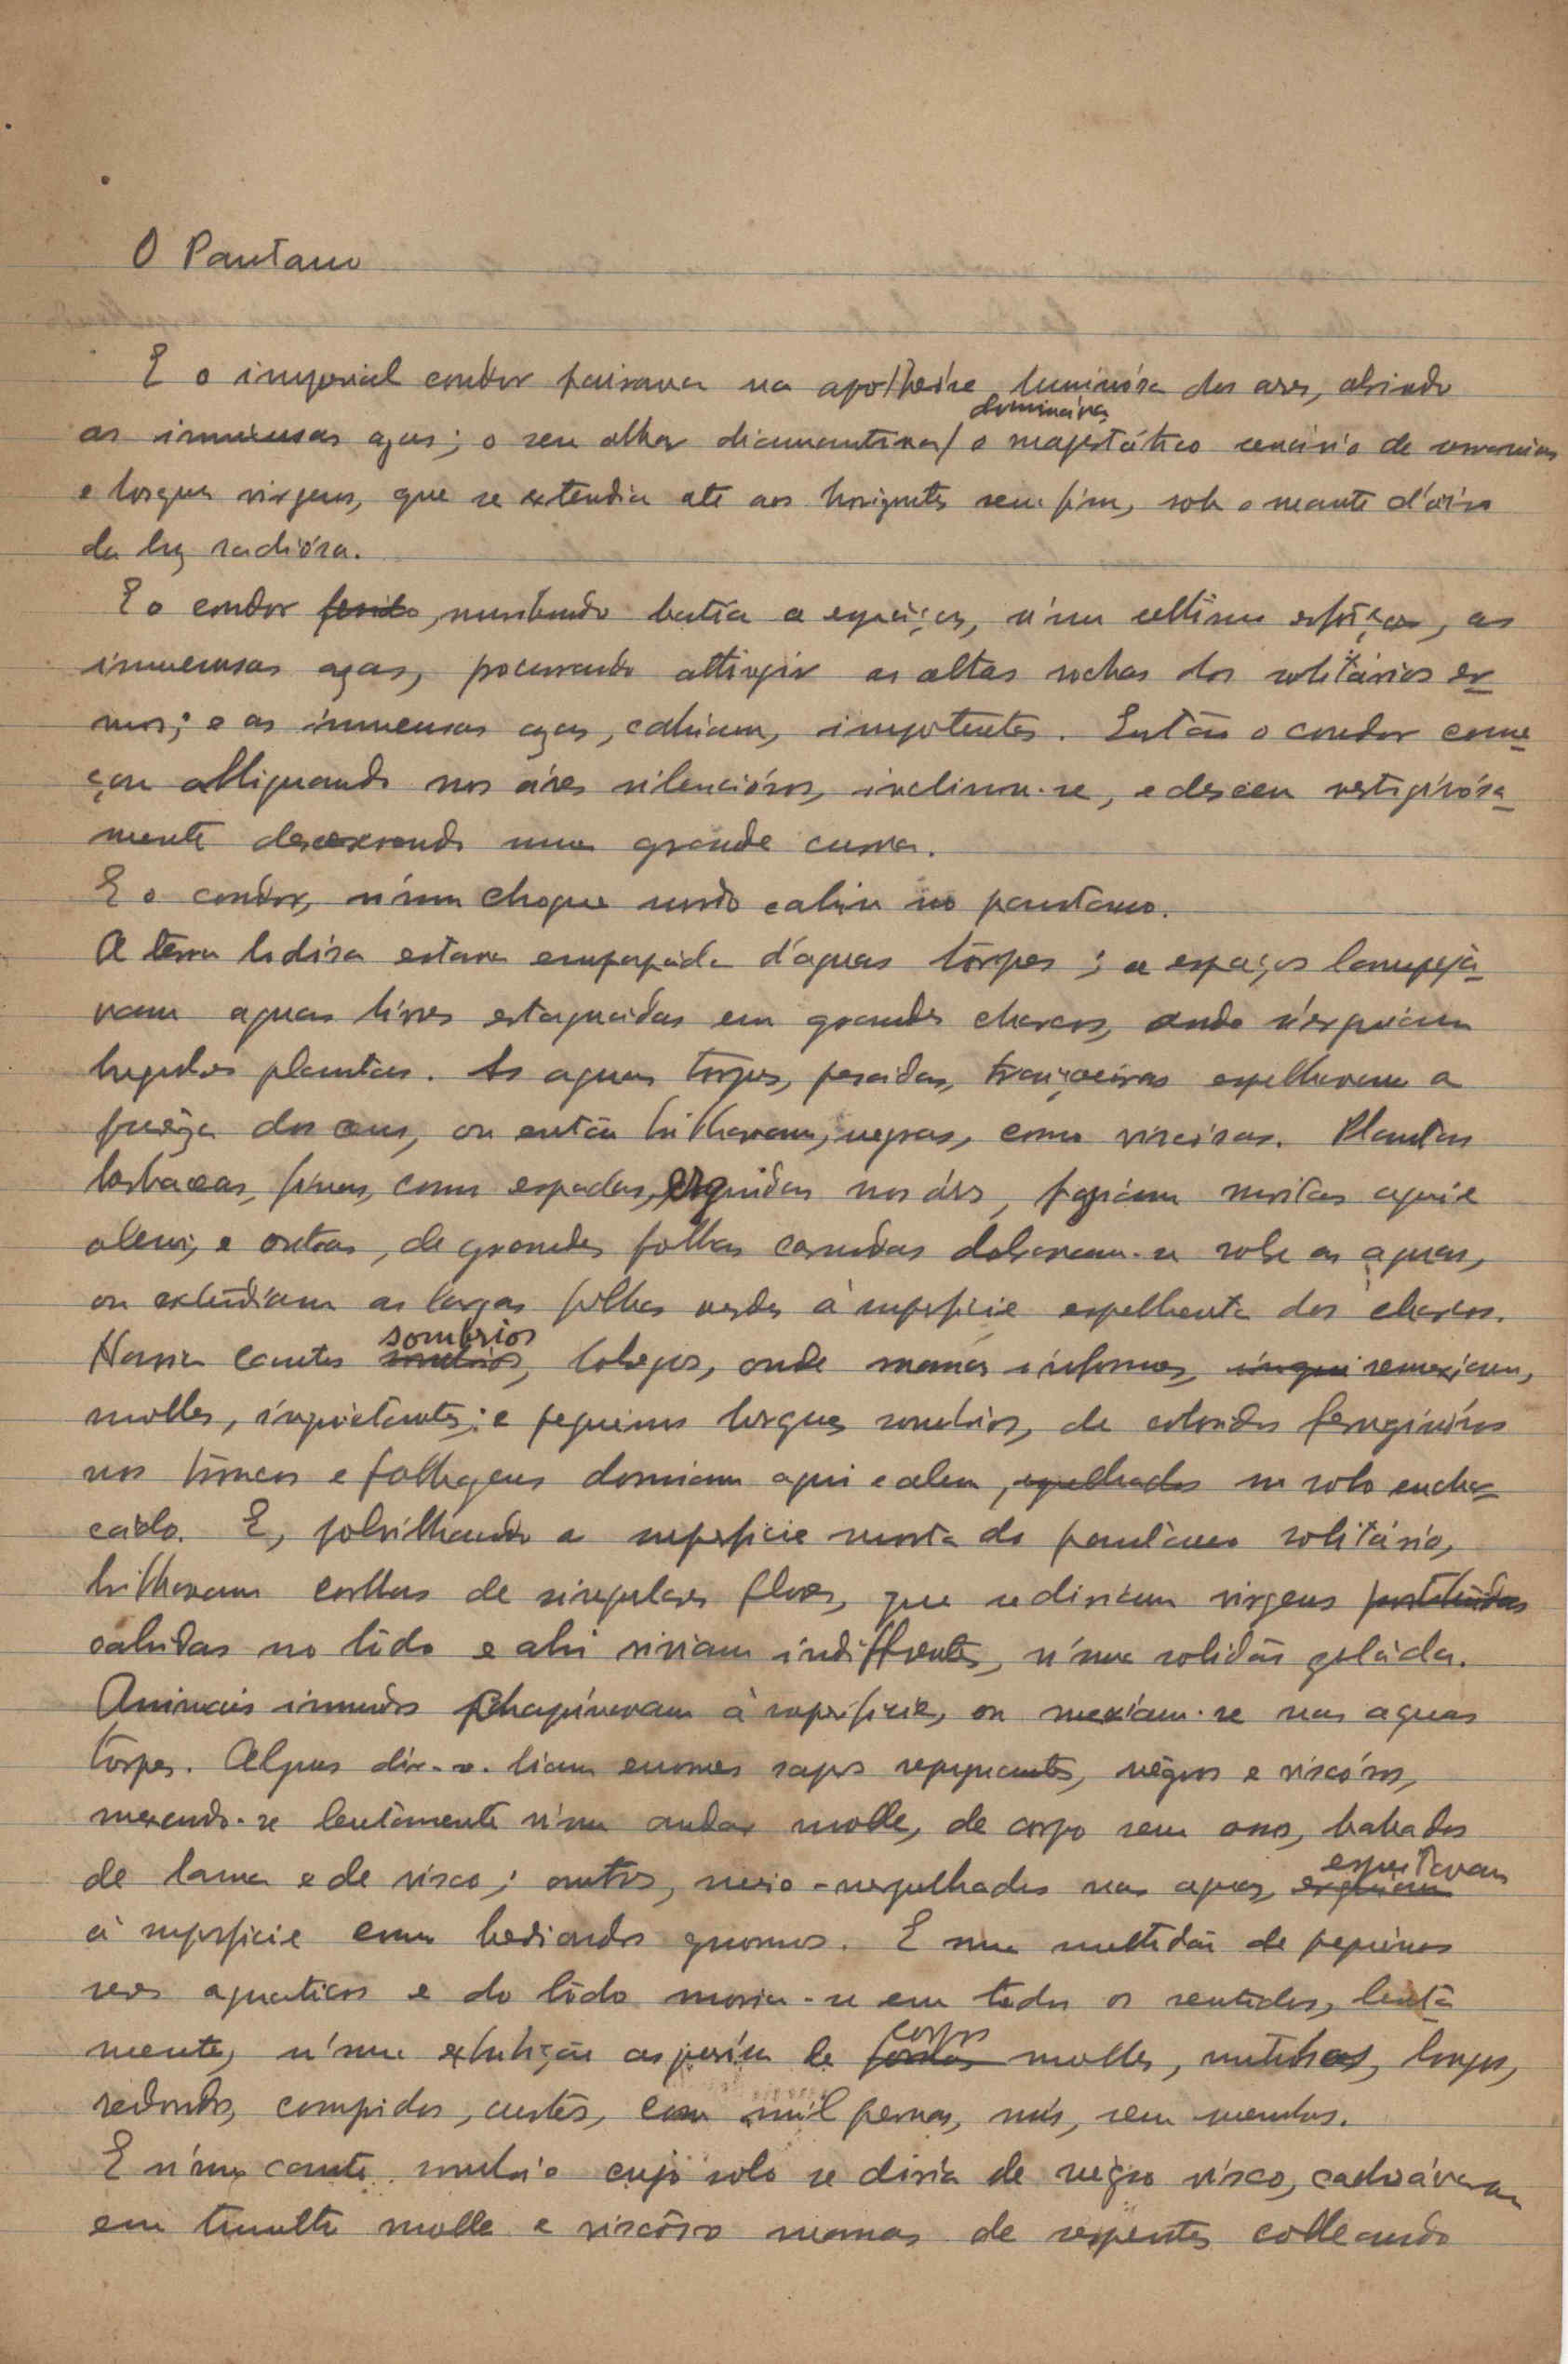 O Pantano
E o imperial condor pairava na apotheóse luminósa dos ares, abrindo
dominava
as immensas azas; o seu olhar diamantino / o majestático cenário de serranias
e bosques virgens, que se extendia até aos horizontes sem fim, sob o manto d'oiro
da luz radiósa.
E o condor ferido, moribundo batia a espáços, n'um ultimo esfôrço, as
immensas azas, procurando attingir as altas rochas dos solitários er-
mos; e as immensas azas, cahiam, impotentes. Então o condor come-
çou obliquando nos áres silenciósos, inclinou-se, e desceu vertiginósa-
mente descrevendo uma grande curva.
E o condor, n'um choque surdo cahiu no pantano.
A terra lodósa estava empapáda d'águas tôrpes; a espaços lampejá-
vam aguas livres estagnadas em grandes charcos, onde s'erguiam
plantas. As aguas torpes, pesadas, traiçoeiras espelhavam a
dos ceus, ou então brilhavam, negras, como viscosas. Plantas
herbaceas, finas, como espadas, erguidas nos áres, faziam moitas aqui e
alem; e outras, de grandes folhas carnudas dobravam-se sobre as aguas,
ou extendiam as largas folhas verdes à superficie espelhenta dos charcos.
sombrios
Havia cantos sombrios, lobregos, onde massas informes, inqui remexiam,
molles, inquietantes; e pequenos bosques sombrios, de coloridos ferruginósos
nos troncos e folhagens dormiam aqui e alem, espelhados no solo enchar-
cado. E, polvilhando a superficie morta do pantano solitário,
brilhavam corollas de singulares flores, que se diriam virgens prostituidas
cahidas no lôdo e ahi viviam indifferentes, n'uma solidão geláda.
Animais immundos chapinavam à superficie, ou mexiam-se nas aguas
torpes. Alguns dir-se-hiam enormes sapos repugnantes, negros e viscósos,
mexendo-se lentamente n'um andar molle, de corpo sem osso, babados
de lama e de visco; outros, meio-mergulhados nas aguas,
espreitavam
à superficie como hediondos gnomos. E uma multidão de pequenos
seres aquaticos e do lôdo movia-se em todos os sentidos, lenta-
corpos
mente, n'uma exhibição de formas molles, longos,
redondos, compridos, curtos, com mil pernas, nús, sem membros.
E n'um canto sombrio cujo solo se diria de negro visco,
em tumulto molle e viscôso massas de serpentes colleando